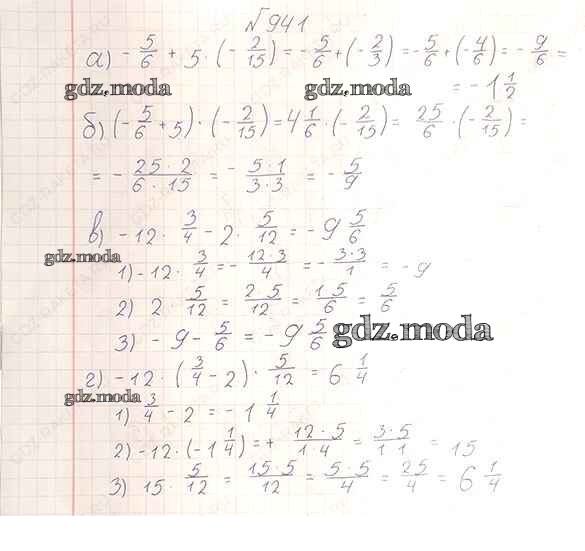 №941
а) - 5/6 + 5 · (- 2/15) = - 5/6 + (- 2/3) = - 5/6 + (- 4/6) = - 9/6 =
= - 1 1/2
gdz.moda gdz.moda
б) (- 5/6 + 5) · (- 2/15) = 4 1/6 · (- 2/15) = 25/6 · (- 2/15) =
= - 25 · 2/6 · 15 = - 5 · 1/3 · 3 = - 5/9
в) - 12 · 3/4 - 2 · 5/12 = - 9 5/6
gdz.moda
1) - 12 · 3/4 = - 12 · 3/4 = - 3 · 3/1 = - 9
2) 2 · 5/12 = 2 · 5/12 = 1 · 5/6 = 5/6
3) - 9 - 5/6 = - 9 5/6
gdz.moda
г) - 12 · (3/4 - 2) · 5/12 = 6 1/4
gdz.moda
1) 3/4 - 2 = - 1 1/4
2) - 12 · (- 1 1/4) = + 12 · 5/1 · 4 = 3 · 5/1 · 1 = 15
3) 15 · 5/12 = 15 · 5/12 = 5 · 5/4 = 25/4 = 6 1/4